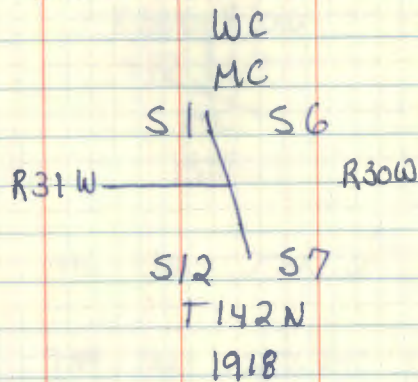 WC
MC
S1 S6
R31W R30W
S12 S7
T142N
1918